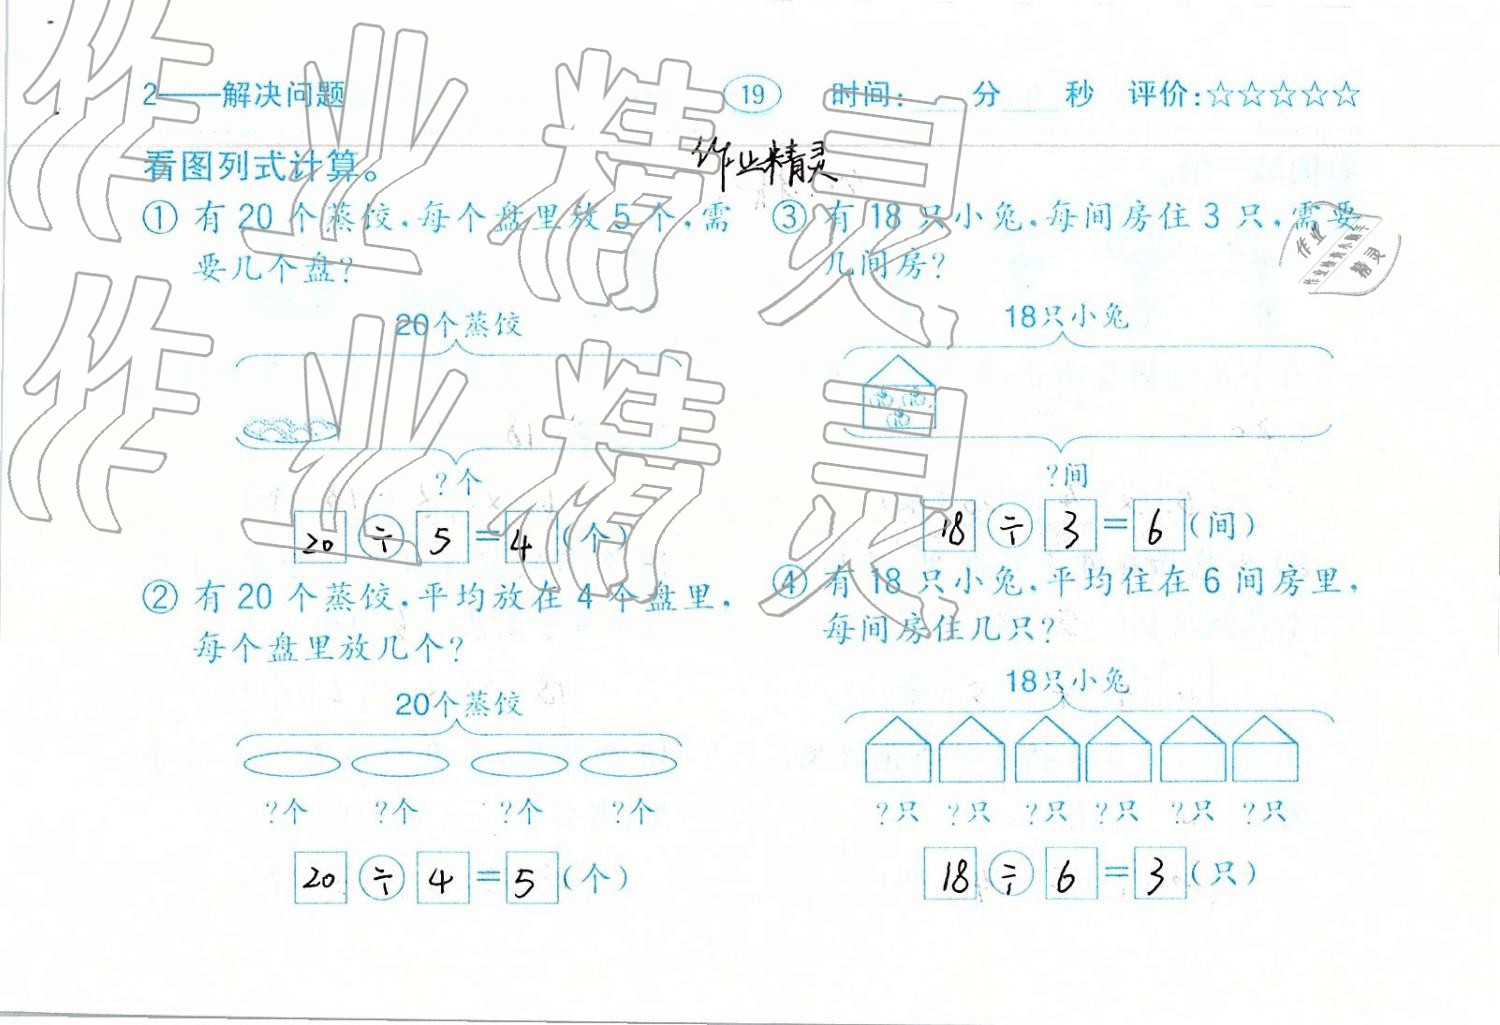 2——解决问题
19
时间: 分 秒 评价:☆☆☆☆☆
看图列式计算。
作业精灵
① 有 20 个蒸饺,每个盘里放 5 个,需
要几个盘?
20个蒸饺
?个
20 ÷ 5 = 4 (个)
② 有 20 个蒸饺,平均放在 4 个盘里,
每个盘里放几个?
20个蒸饺
?个 ?个 ?个 ?个
20 ÷ 4 = 5 (个)
③ 有 18 只小兔,每间房住 3 只,需要
几间房?
18只小兔
?间
18 ÷ 3 = 6 (间)
④ 有 18 只小兔,平均住在 6 间房里,
每间房住几只?
18只小兔
?只 ?只 ?只 ?只 ?只 ?只
18 ÷ 6 = 3 (只)
作业精灵
作业精灵
作业
精灵